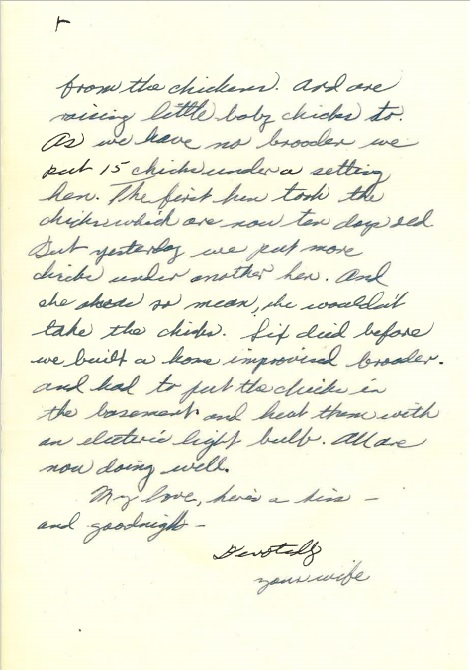 from the chickens. And are
raising little baby chicks to.
As we have no brooder we
put 15 chicks under a setting
hen. The first hen took the
chicks which are now ten days old
But yesterday we put more
chicks under another hen. And
she so mean, she wouldn't
take the chicks. Six died before
we built a home improvised brooder.
and had to put the chicks in
the basement and heat them with
an electric light bulb. All are
now doing well.
My love, here's a kiss -
and goodnight -
Devotedly
your wife